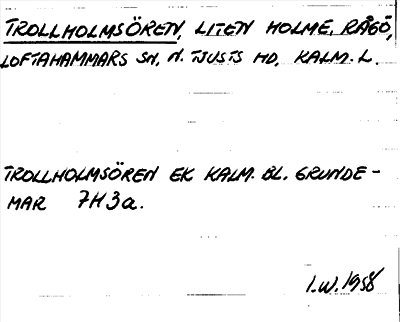 TROLLHOLMSÖREN, LITEN HOLME, RÅGÖ,
LOFTAHAMMARS SN, N. TJUSTS HD, KALM. L.
TROLLHOLMSÖREN EK KALM. BL. GRUNDE-
MAR 7H3a.
I.W. 1958